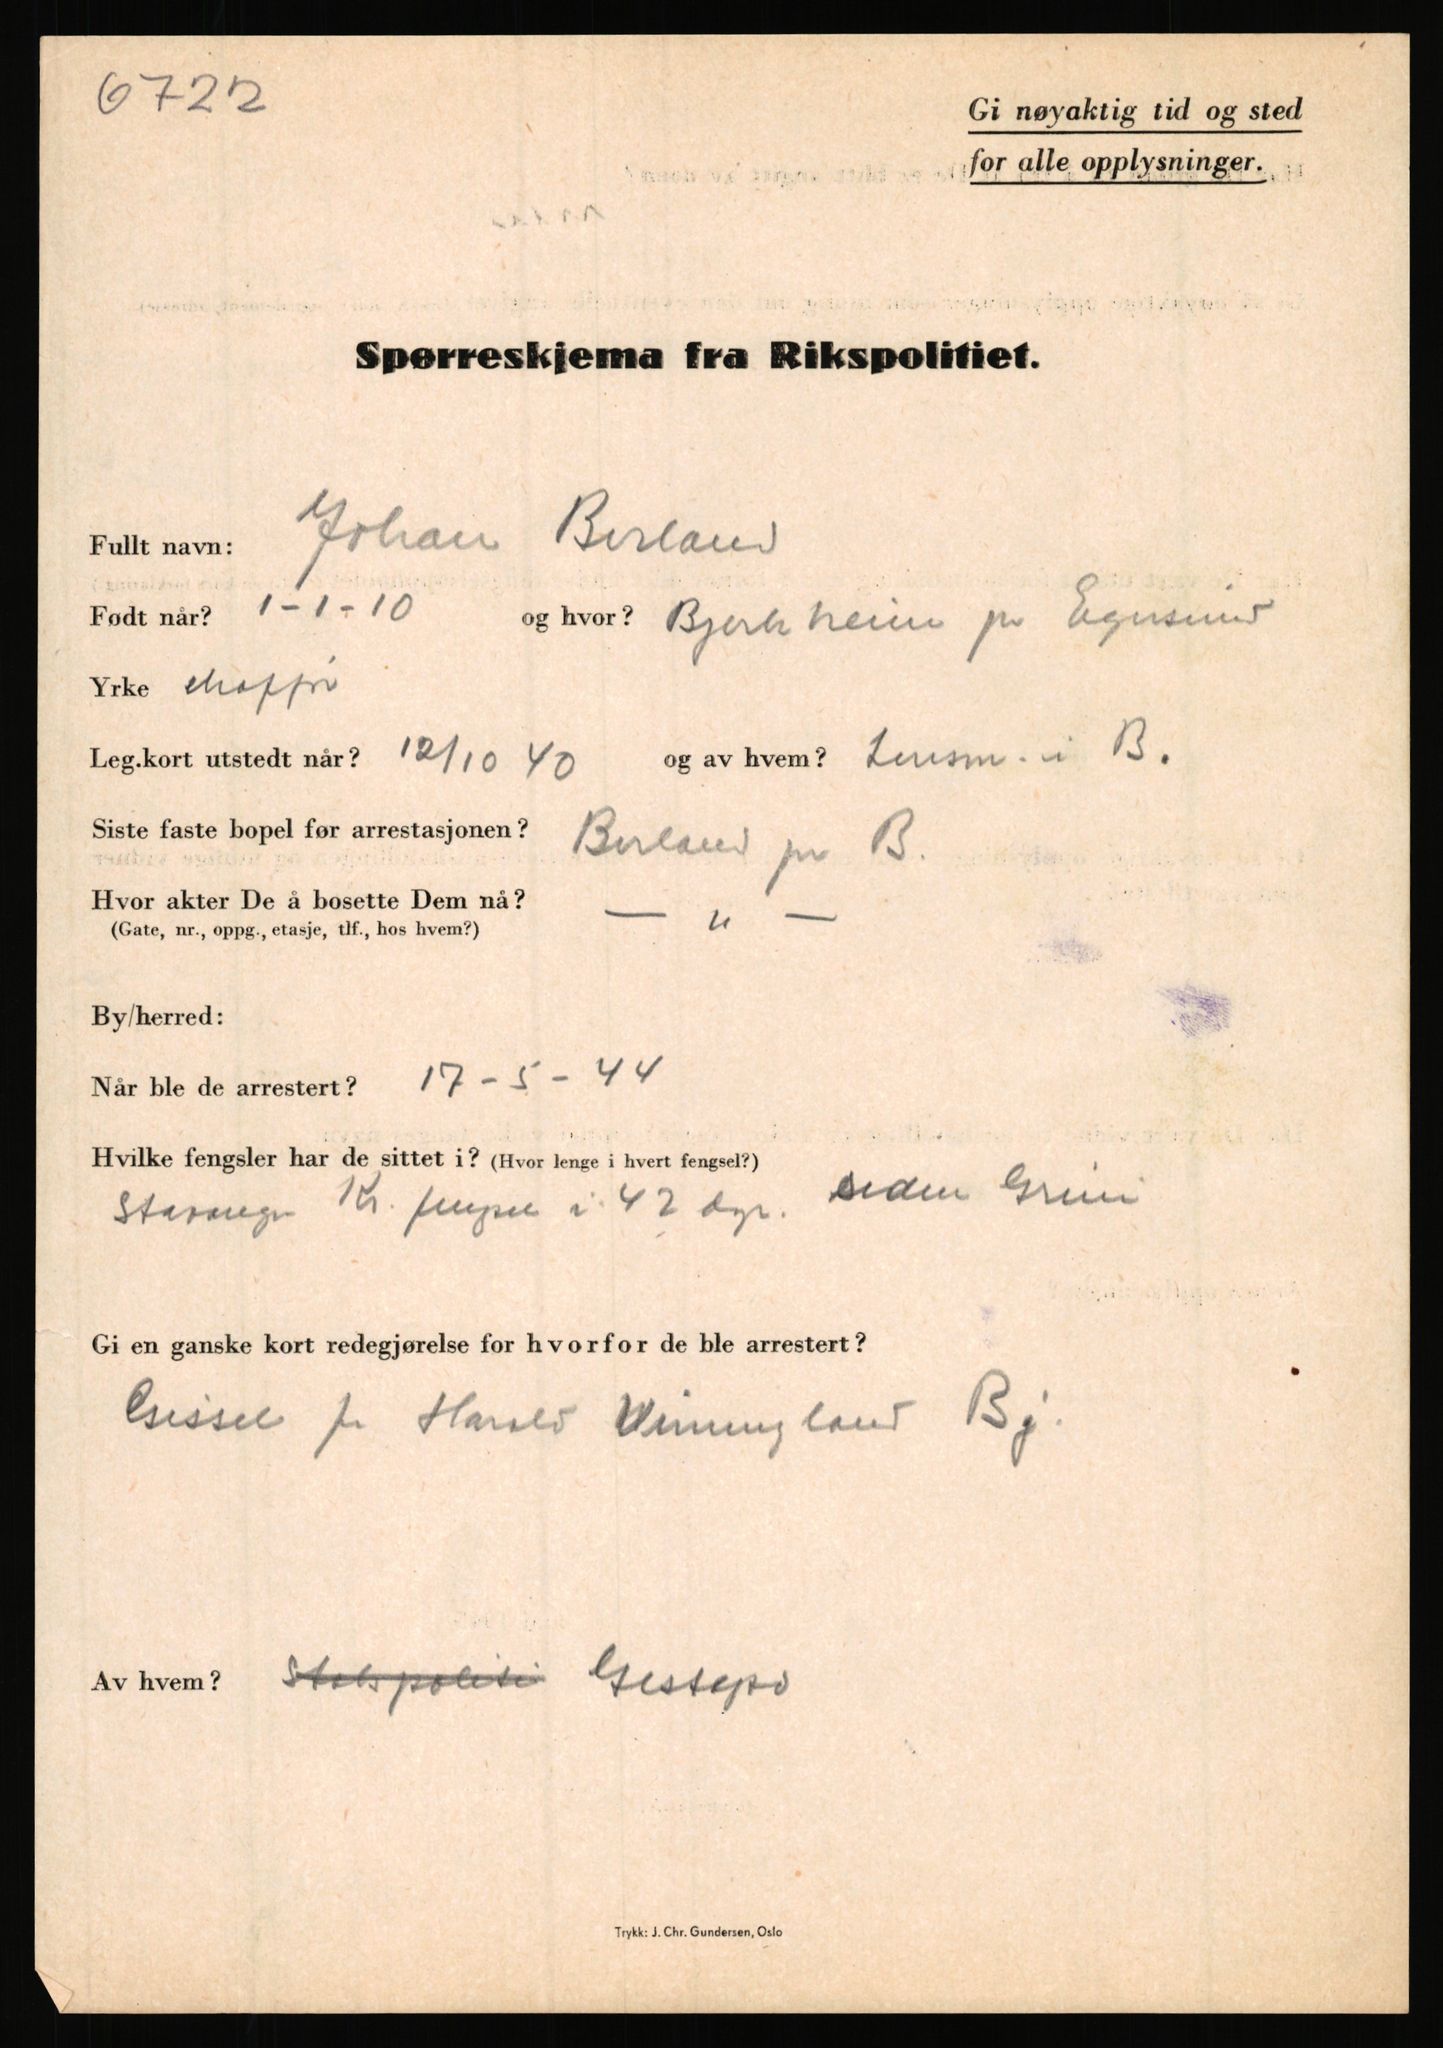 6722
Gi nøyaktig tid og sted
for alle opplysninger.
Spørreskjema fra Rikspolitiet.
Fullt navn: Johan Berland
Født når? 1-1-10 og hvor? Bjerkheim pr Egersund
Yrke chaffør
Leg.kort utstedt når? 12/10 40 og av hvem? Lensm. i B.
Siste faste bopel før arrestasjonen? Berland pr B.
Hvor akter De å bosette Dem nå? — " —
(Gate, nr., oppg., etasje, tlf., hos hvem?)
By/herred:
Når ble de arrestert? 17-5-44
Hvilke fengsler har de sittet i? (Hvor lenge i hvert fengsel?)
Stavanger Kr. fengsel i 42 dgr. siden Grini
Gi en ganske kort redegjørelse for hvorfor de ble arrestert?
Gissel for Harald Vinningland Bj.
Av hvem? Statspoliti Gestapo
Trykk: J. Chr. Gundersen, Oslo